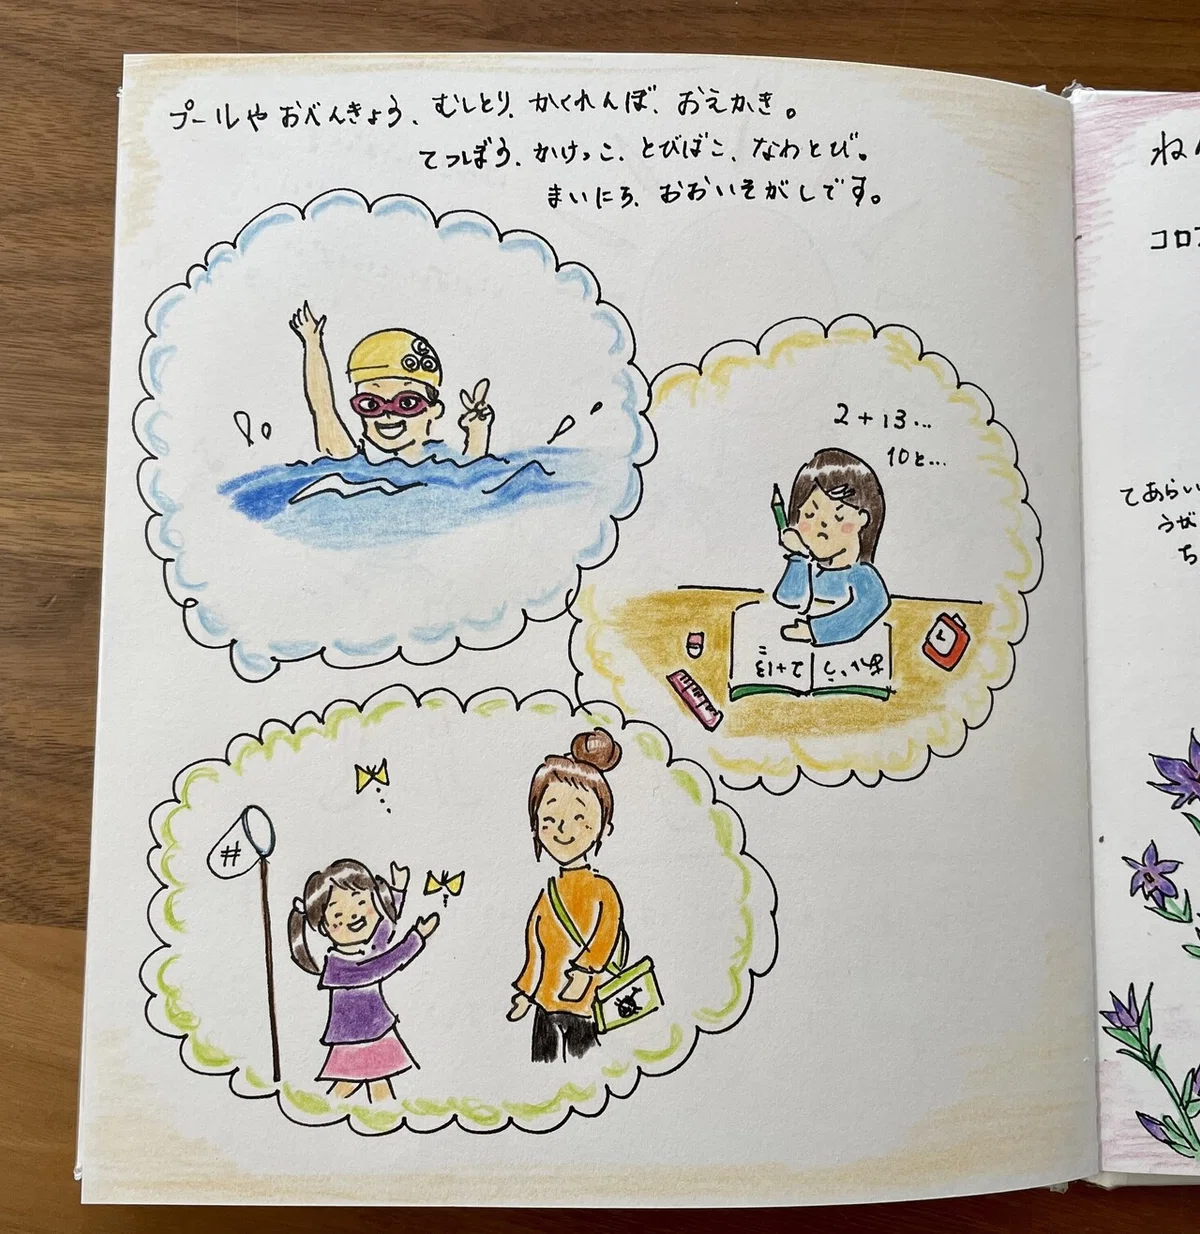 プールや おべんきょう、むしとり、かくれんぼ、おえかき。
てつぼう、かけっこ、とびばこ、なわとび。
まいにち、おおいそがしです。
2+13...
10と...
2+13
こ
さんすう
#
コロ
てあらい
うが
ち